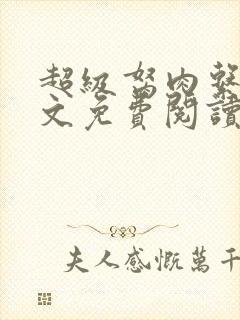 超級弩肉
文免費閱讀
夫人感慨萬千